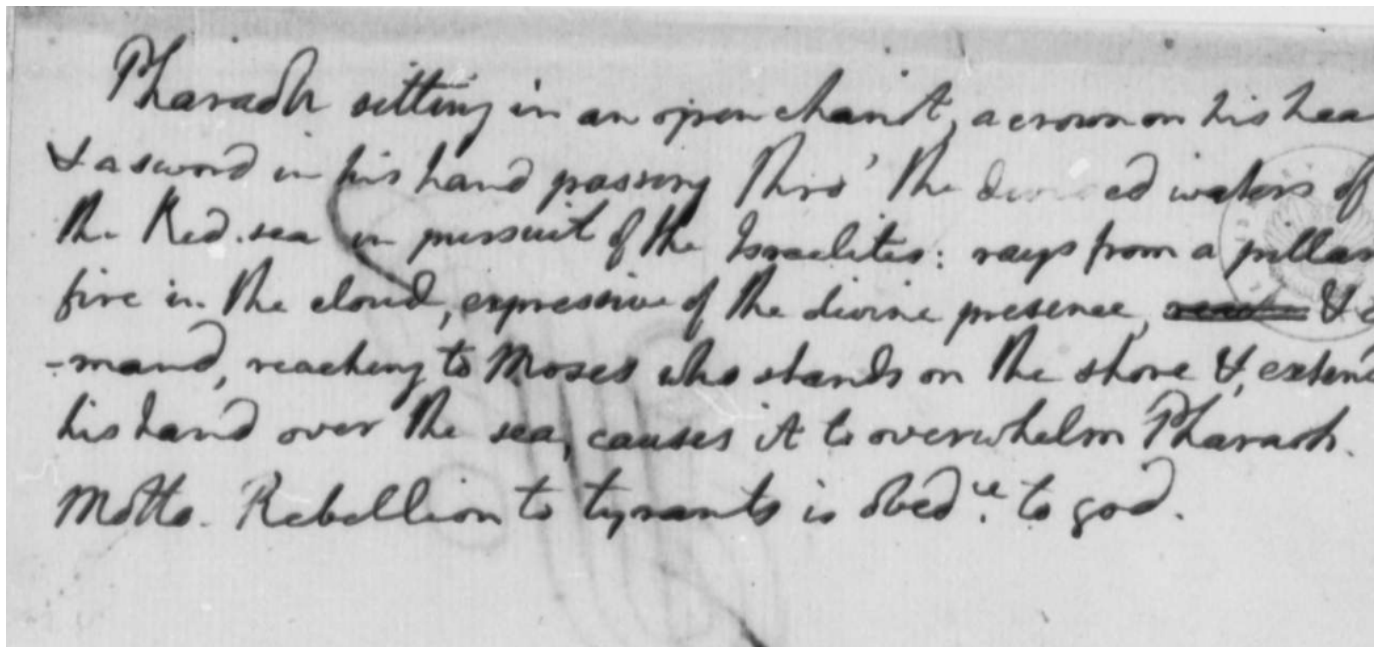 Pharaoh sitting in an open chariot, a crown on his hea
& a sword in his hand passing thro' the divided waters of
the Red sea in pursuit of the Israelites: rays from a pillar
fire in the cloud, expressive of the divine presence, & c
-mand, reaching to Moses who stands on the shore &, extend
his hand over the sea, causes it to overwhelm Pharaoh.
Motto. Rebellion to tyrants is obed.ce to god.